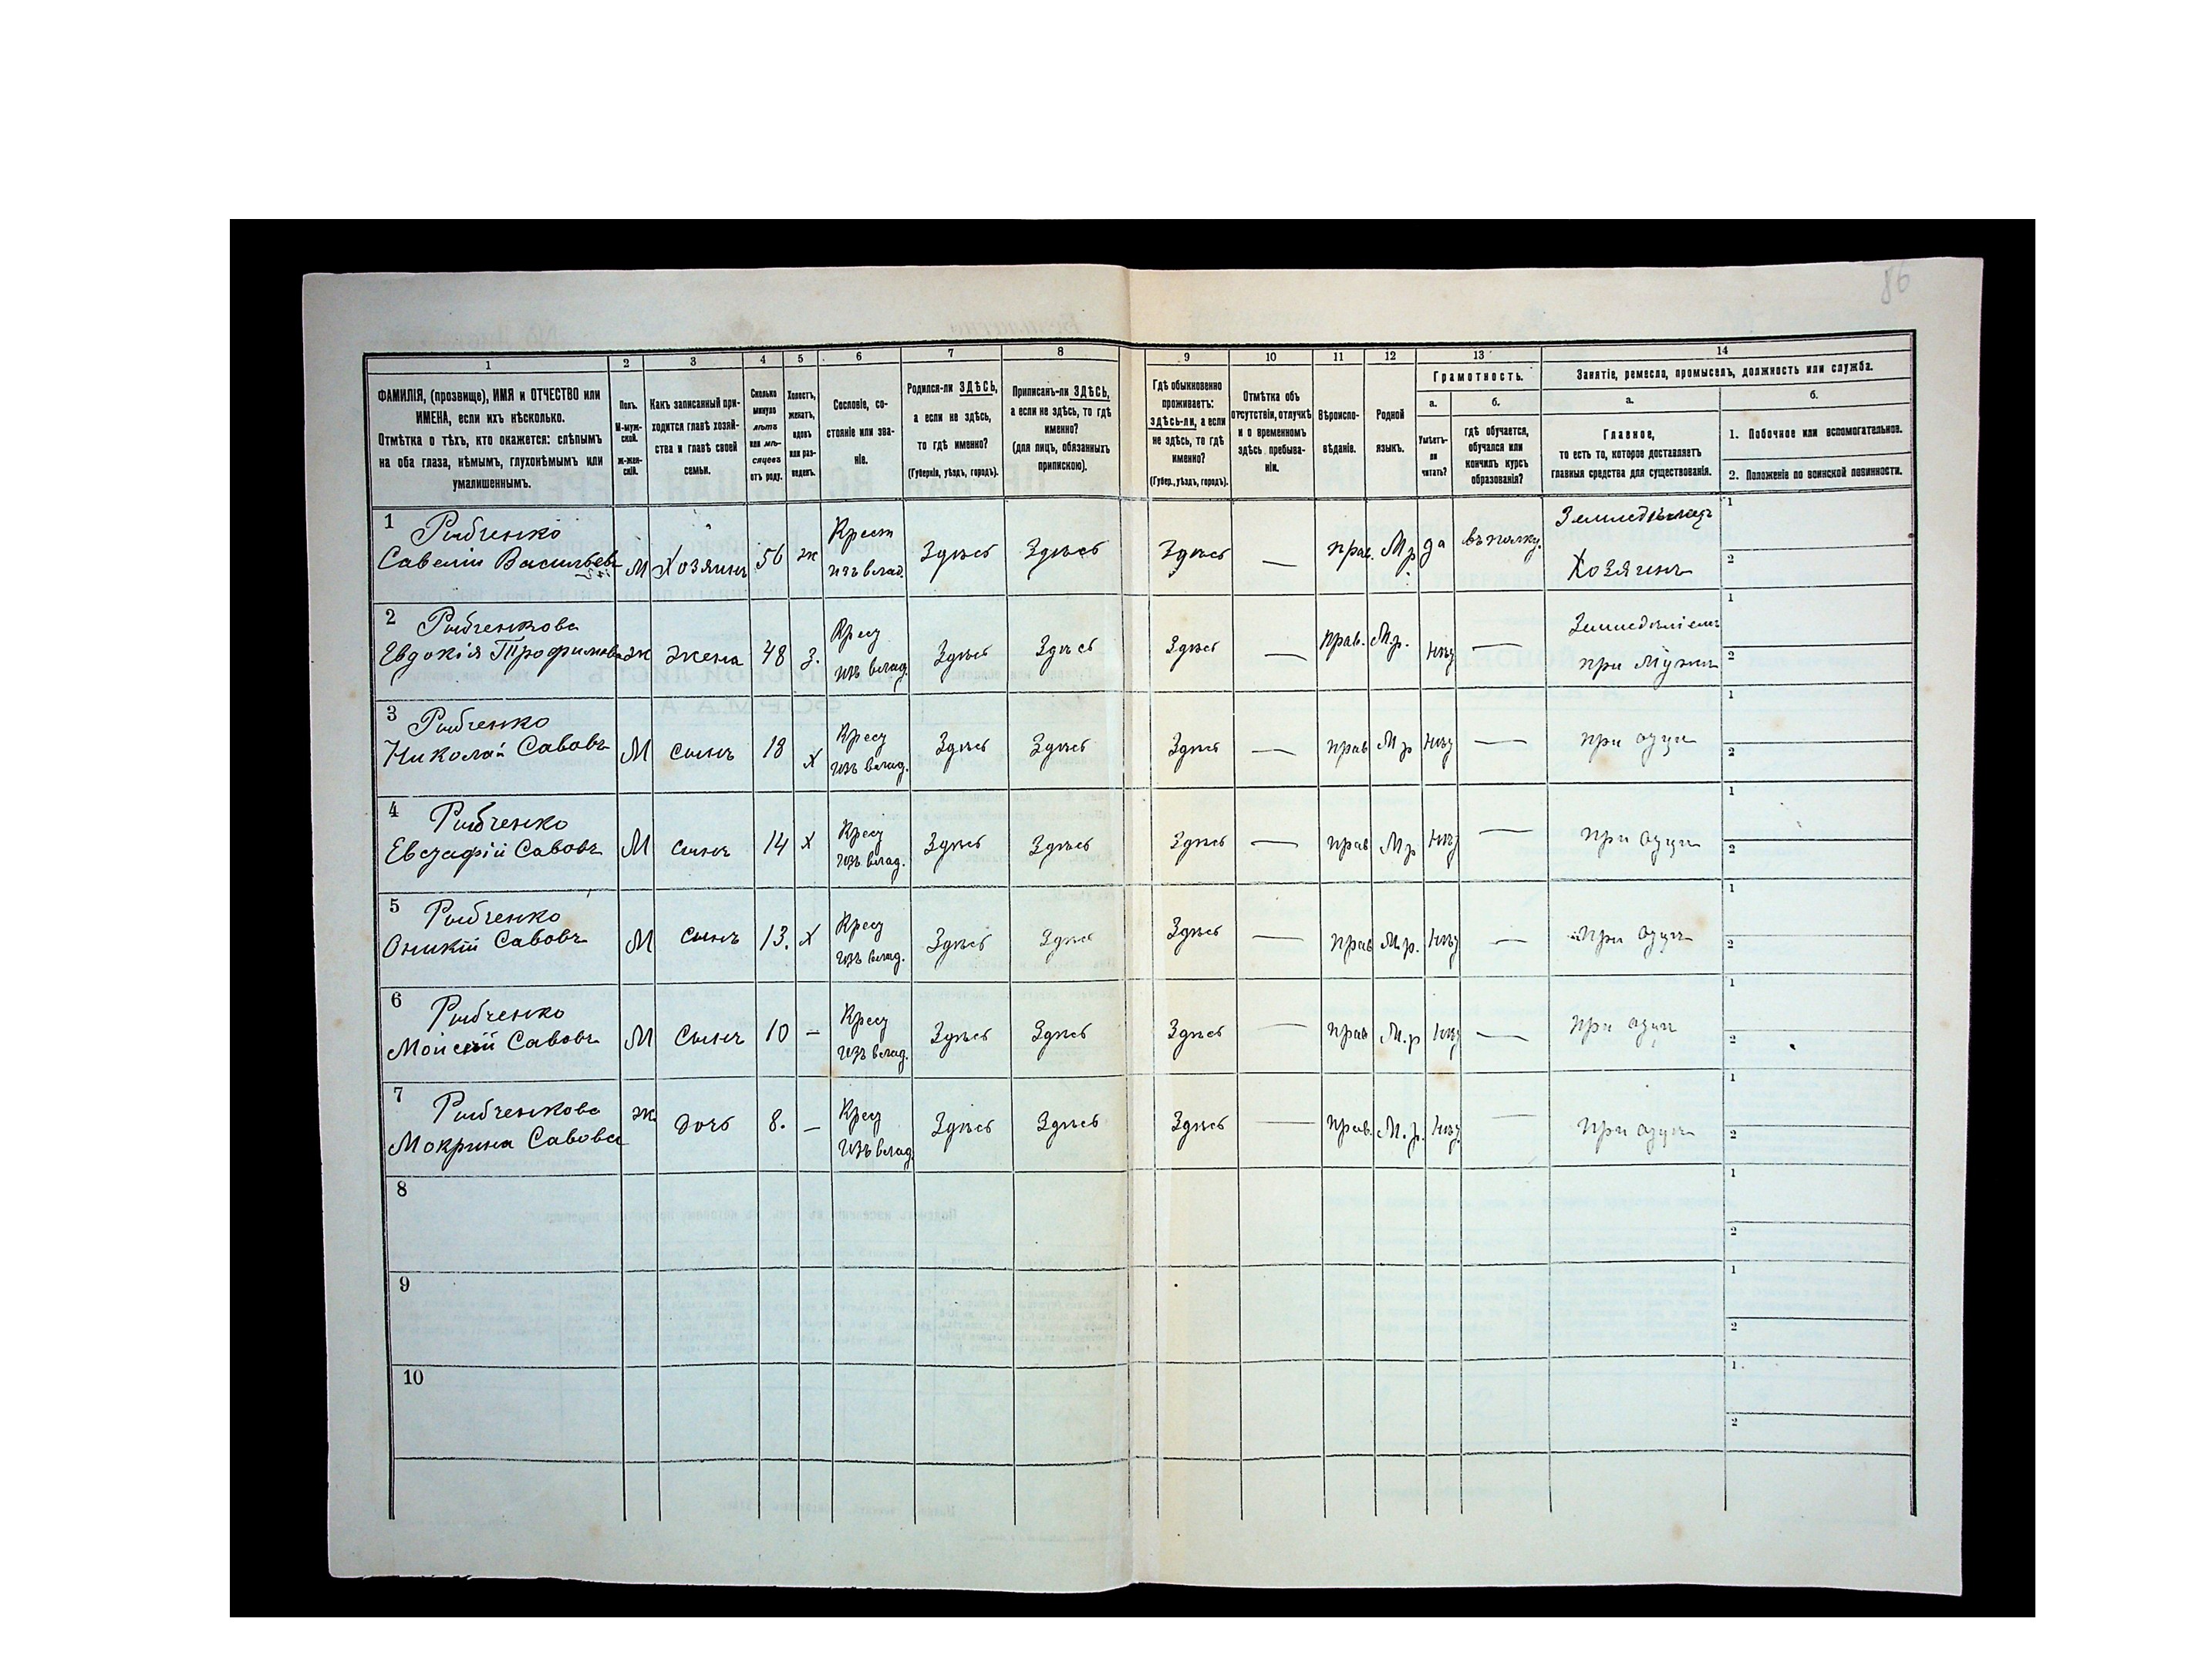 86
1 2 3 4 5 6 7 8 9 10 11 12 13 14
ФАМИЛІЯ, (прозвище), ИМЯ и ОТЧЕСТВО или
ИМЕНА, если ихъ нѣсколько.
Отмѣтка о тѣхъ, кто окажется: слѣпымъ
на оба глаза, нѣмымъ, глухонѣмымъ или
умалишеннымъ.
Полъ.
М-муж-
ской.
Ж-жен-
скій.
Какъ записанный при-
ходится главѣ хозяй-
ства и главѣ своей
семьи.
Сколько
минуло
лѣтъ
или мѣ-
сяцевъ
отъ роду.
Холостъ,
женатъ,
вдовъ
или раз-
веденъ.
Сословіе, со-
стояніе или зва-
ніе.
Родился-ли ЗДѢСЬ,
а если не здѣсь,
то гдѣ именно?
(Губернія, уѣздъ, городъ).
Приписанъ-ли ЗДѢСЬ,
а если не здѣсь, то гдѣ
именно?
(для лицъ, обязанныхъ
припискою).
Гдѣ обыкновенно
проживаетъ:
здѣсь-ли, а если
не здѣсь, то гдѣ
именно?
(Губер., уѣздъ, городъ).
Отмѣтка объ
отсутствіи, отлучкѣ
и о временномъ
здѣсь пребыва-
ніи.
Вѣроиспо-
вѣданіе.
Родной
языкъ.
Грамотность.
а.
Умѣетъ-
ли
читать?
б.
гдѣ обучается,
обучался или
кончилъ курсъ
образованія?
Занятіе, ремесло, промыселъ, должность или служба.
а.
Главное,
то есть то, которое доставляетъ
главныя средства для существованія.
б.
1. Побочное или вспомогательное.
2. Положеніе по воинской повинности.
1 Рыбченко
Савелій Васильевъ М Хозяинъ 56 ж Крест изъ влад. Здѣсь Здѣсь Здѣсь — прав. М.р. да въ полку. Земледѣлецъ Хозяинъ 1 2
2 Рыбченкова
Евдокія Трофимова ж жена 48 з. Крест изъ влад. Здѣсь Здѣсь Здѣсь — прав. М.р. нѣт — Земледѣліемъ при мужѣ 1 2
3 Рыбченко
Николай Савовъ М сынъ 18 х Крест изъ влад. Здѣсь Здѣсь Здѣсь — прав М р нѣт — при отцѣ 1 2
4 Рыбченко
Евстафій Савовъ М сынъ 14 х Крест изъ влад. Здѣсь Здѣсь Здѣсь — прав М р нѣт — при отцѣ 1 2
5 Рыбченко
Оникій Савовъ М сынъ 13. х Крест изъ влад. Здѣсь Здѣсь Здѣсь — прав М.р. нѣт — при отцѣ 1 2
6 Рыбченко
Моисей Савовъ М Сынъ 10 — Крест изъ влад. Здѣсь Здѣсь Здѣсь — прав М.р нѣт — при отцѣ 1 2
7 Рыбченкова
Мокрина Савова ж дочь 8. — Крест изъ влад. Здѣсь Здѣсь Здѣсь — прав. М.р. нѣт — при отцѣ 1 2
8 1 2
9 1 2
10 1 2